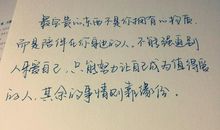 最宝贵的东西不是你拥有的物质，
而是陪伴在你身边的人。不能强迫别
人来爱自己，只能努力让自己成为值得爱
的人，其余的事情则靠缘份。